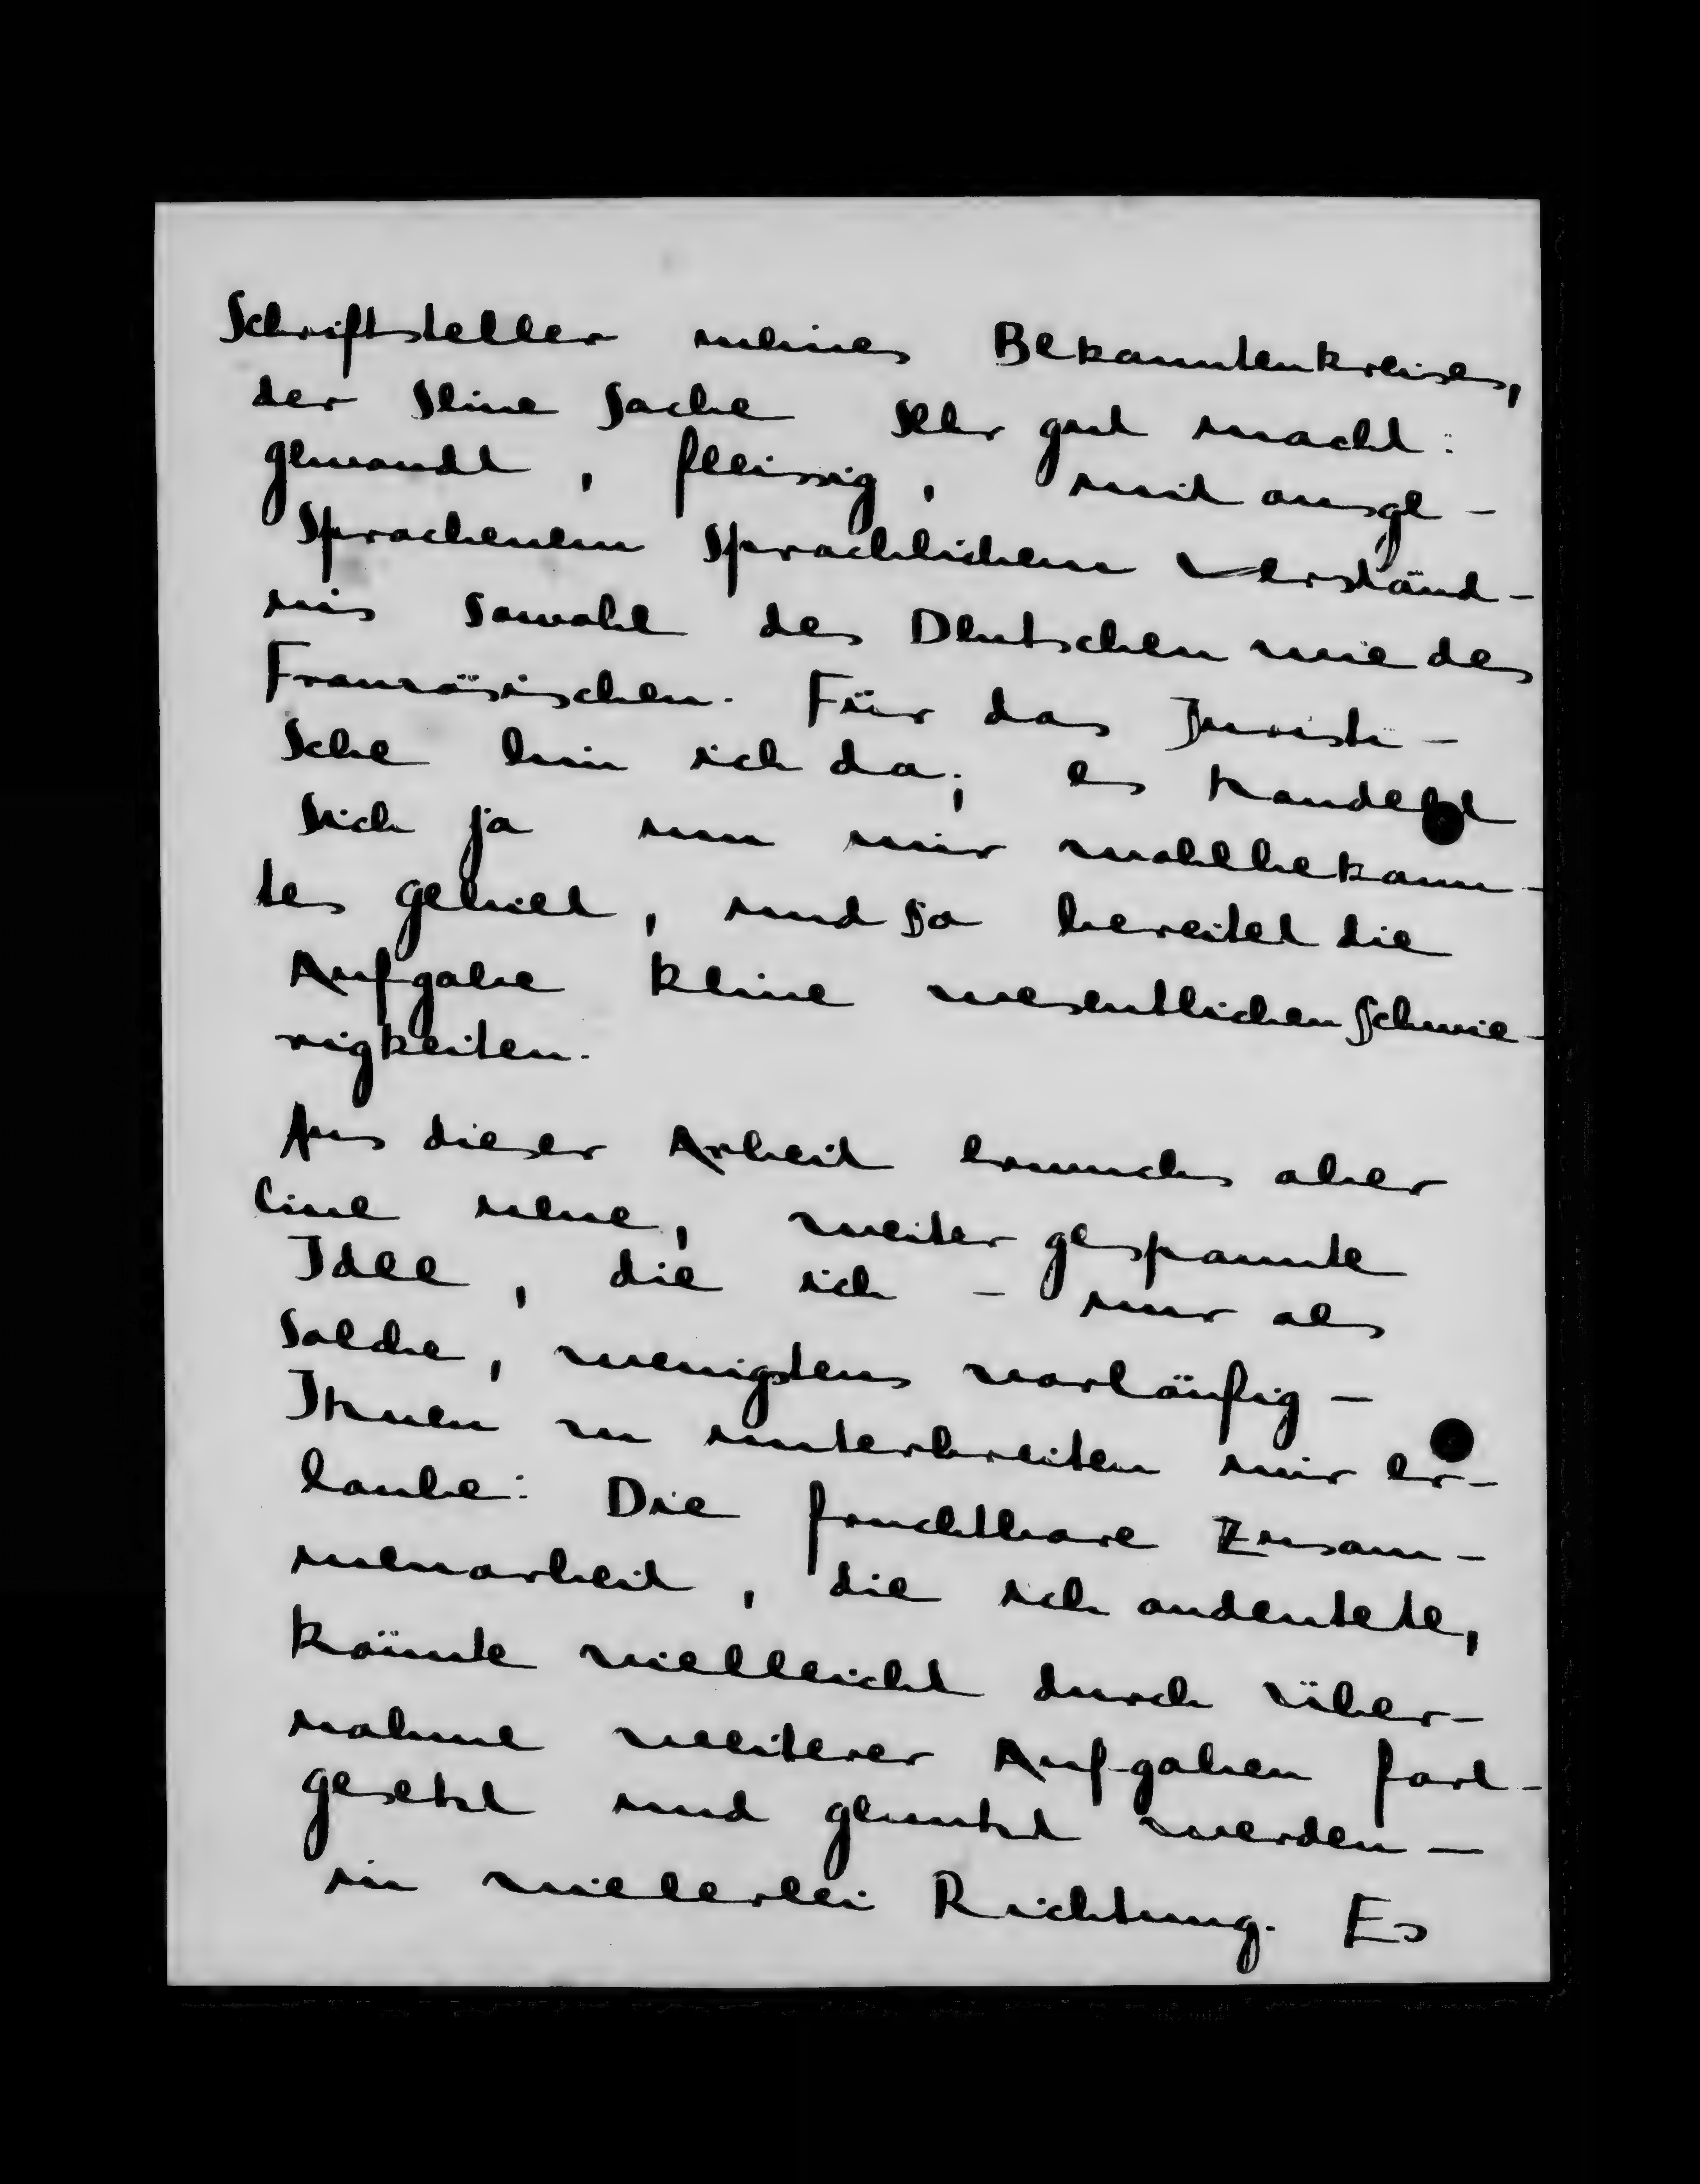 Schriftsteller meines Bekanntenkreises,
der seine Sache sehr gut macht:
gewandt, fleissig, mit ausge-
sprochenem sprachlichem Verständ-
nis sowohl des Deutschen wie des
Französischen. Für das Juristi-
sche bin ich da; es handelt
sich ja um mir wohlbekann-
tes Gebiet, und so bereitet die
Aufgabe keine wesentlichen Schwie-
rigkeiten.
Aus dieser Arbeit erwuchs aber
eine neue, weiter gespannte
Idee, die ich - nur als
solche, wenigstens vorläufig -
Ihnen zu unterbreiten mir er-
laube: Die fruchtbare Zusam-
menarbeit, die sich andeutete,
könnte vielleicht durch Über-
nahme weiterer Aufgaben fort-
gesetzt und genutzt werden -
in vielerlei Richtung. Es